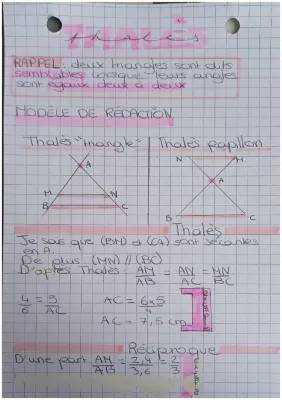 THALÈS
RAPPEL: deux triangles sont dits
semblables lorsque leurs angles
sont égaux deux à deux
MODÈLE DE RÉDACTION
Thalès "triangle"
Thalès papillon
A
M N
B C
N M
A
B C
Thalès
Je sais que (BM) et (CN) sont sécantes
en A.
De plus (MN) // (BC)
D'après Thalès: AM/AB = AN/AC = MN/BC
4/6 = 5/AC
AC = 6x5/4
AC = 7,5 cm
Réciproque
D'une part AM/AB = 2,4/3,6 = 2/3